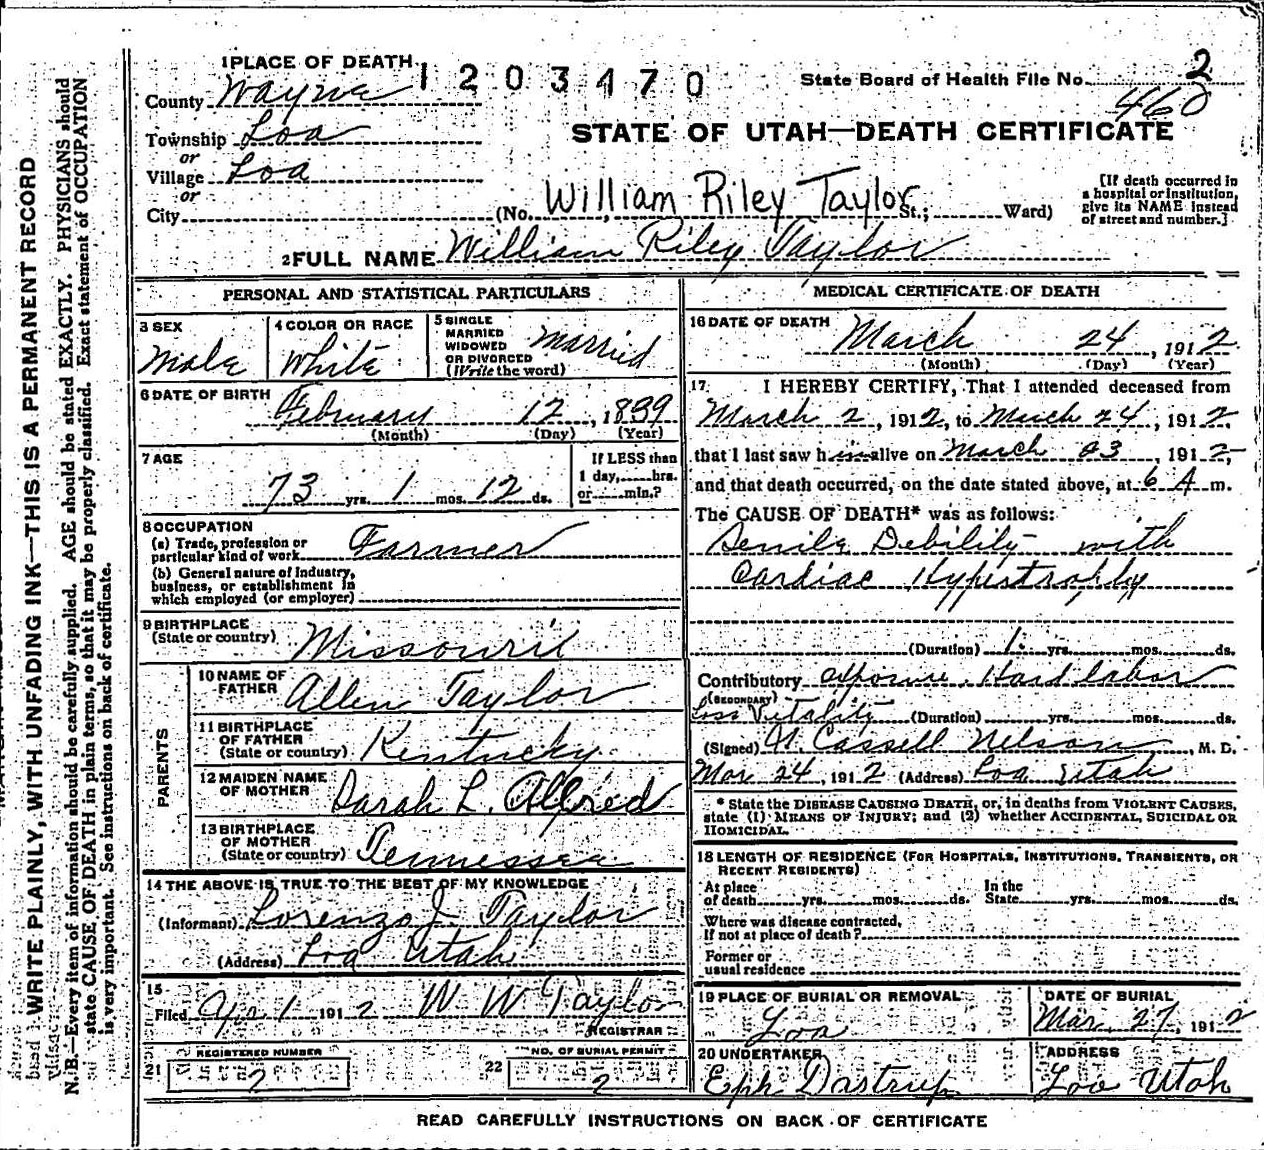 1 PLACE OF DEATH
1203470
State Board of Health File No. 2
460
County Wayne
Township Loa
STATE OF UTAH—DEATH CERTIFICATE
or
Village Loa
or
City (No. William Riley Taylor St.; Ward)
[If death occurred in
a hospital or institution,
give its NAME instead
of street and number.]
2 FULL NAME William Riley Taylor
PERSONAL AND STATISTICAL PARTICULARS
3 SEX
Male
4 COLOR OR RACE
White
5 SINGLE
MARRIED
WIDOWED
OR DIVORCED
(Write the word)
Married
6 DATE OF BIRTH
February 12, 1839
(Month) (Day) (Year)
7 AGE
73 yrs. 1 mos. 12 ds.
If LESS than
1 day, hrs.
or min.?
8 OCCUPATION
(a) Trade, profession or
particular kind of work Farmer
(b) General nature of Industry,
business, or establishment in
which employed (or employer)
9 BIRTHPLACE
(State or country) Missouri
PARENTS
10 NAME OF
FATHER Allen Taylor
11 BIRTHPLACE
OF FATHER
(State or country) Kentucky
12 MAIDEN NAME
OF MOTHER Sarah L. Allred
13 BIRTHPLACE
OF MOTHER
(State or country) Tennessee
14 THE ABOVE IS TRUE TO THE BEST OF MY KNOWLEDGE
(Informant) Lorenzo J Taylor
(Address) Loa Utah
15
Filed Apr 1 1912 W W Taylor
REGISTRAR
21 REGISTERED NUMBER
2
22 NO. OF BURIAL PERMIT
2
MEDICAL CERTIFICATE OF DEATH
16 DATE OF DEATH
March 24, 1912
(Month) (Day) (Year)
17 I HEREBY CERTIFY, That I attended deceased from
March 2, 1912, to March 24, 1912,
that I last saw him alive on March 23, 1912,
and that death occurred, on the date stated above, at 6 A m.
The CAUSE OF DEATH* was as follows:
Senile Debility with
Cardiac Hypertrophy
(Duration) 1 yrs. mos. ds.
Contributory exposure, Hard labor
(SECONDARY)
loss Vitality (Duration) yrs. mos. ds.
(Signed) Cassell Nelson, M. D.
Mar 24, 1912 (Address) Loa Utah
* State the DISEASE CAUSING DEATH, or, in deaths from VIOLENT CAUSES,
state (1) MEANS OF INJURY; and (2) whether ACCIDENTAL, SUICIDAL OR
HOMICIDAL.
18 LENGTH OF RESIDENCE (FOR HOSPITALS, INSTITUTIONS, TRANSIENTS, OR
RECENT RESIDENTS)
At place
of death yrs. mos. ds.
In the
State yrs. mos. ds.
Where was disease contracted,
If not at place of death?
Former or
usual residence
19 PLACE OF BURIAL OR REMOVAL
Loa
DATE OF BURIAL
Mar. 27, 1912
20 UNDERTAKER
Eph Dastrup
ADDRESS
Loa Utah
READ CAREFULLY INSTRUCTIONS ON BACK OF CERTIFICATE
WRITE PLAINLY, WITH UNFADING INK—THIS IS A PERMANENT RECORD
N. B.—Every item of information should be carefully supplied. AGE should be stated EXACTLY. PHYSICIANS should
state CAUSE OF DEATH in plain terms, so that it may be properly classified. Exact statement of OCCUPATION
is very important. See instructions on back of certificate.